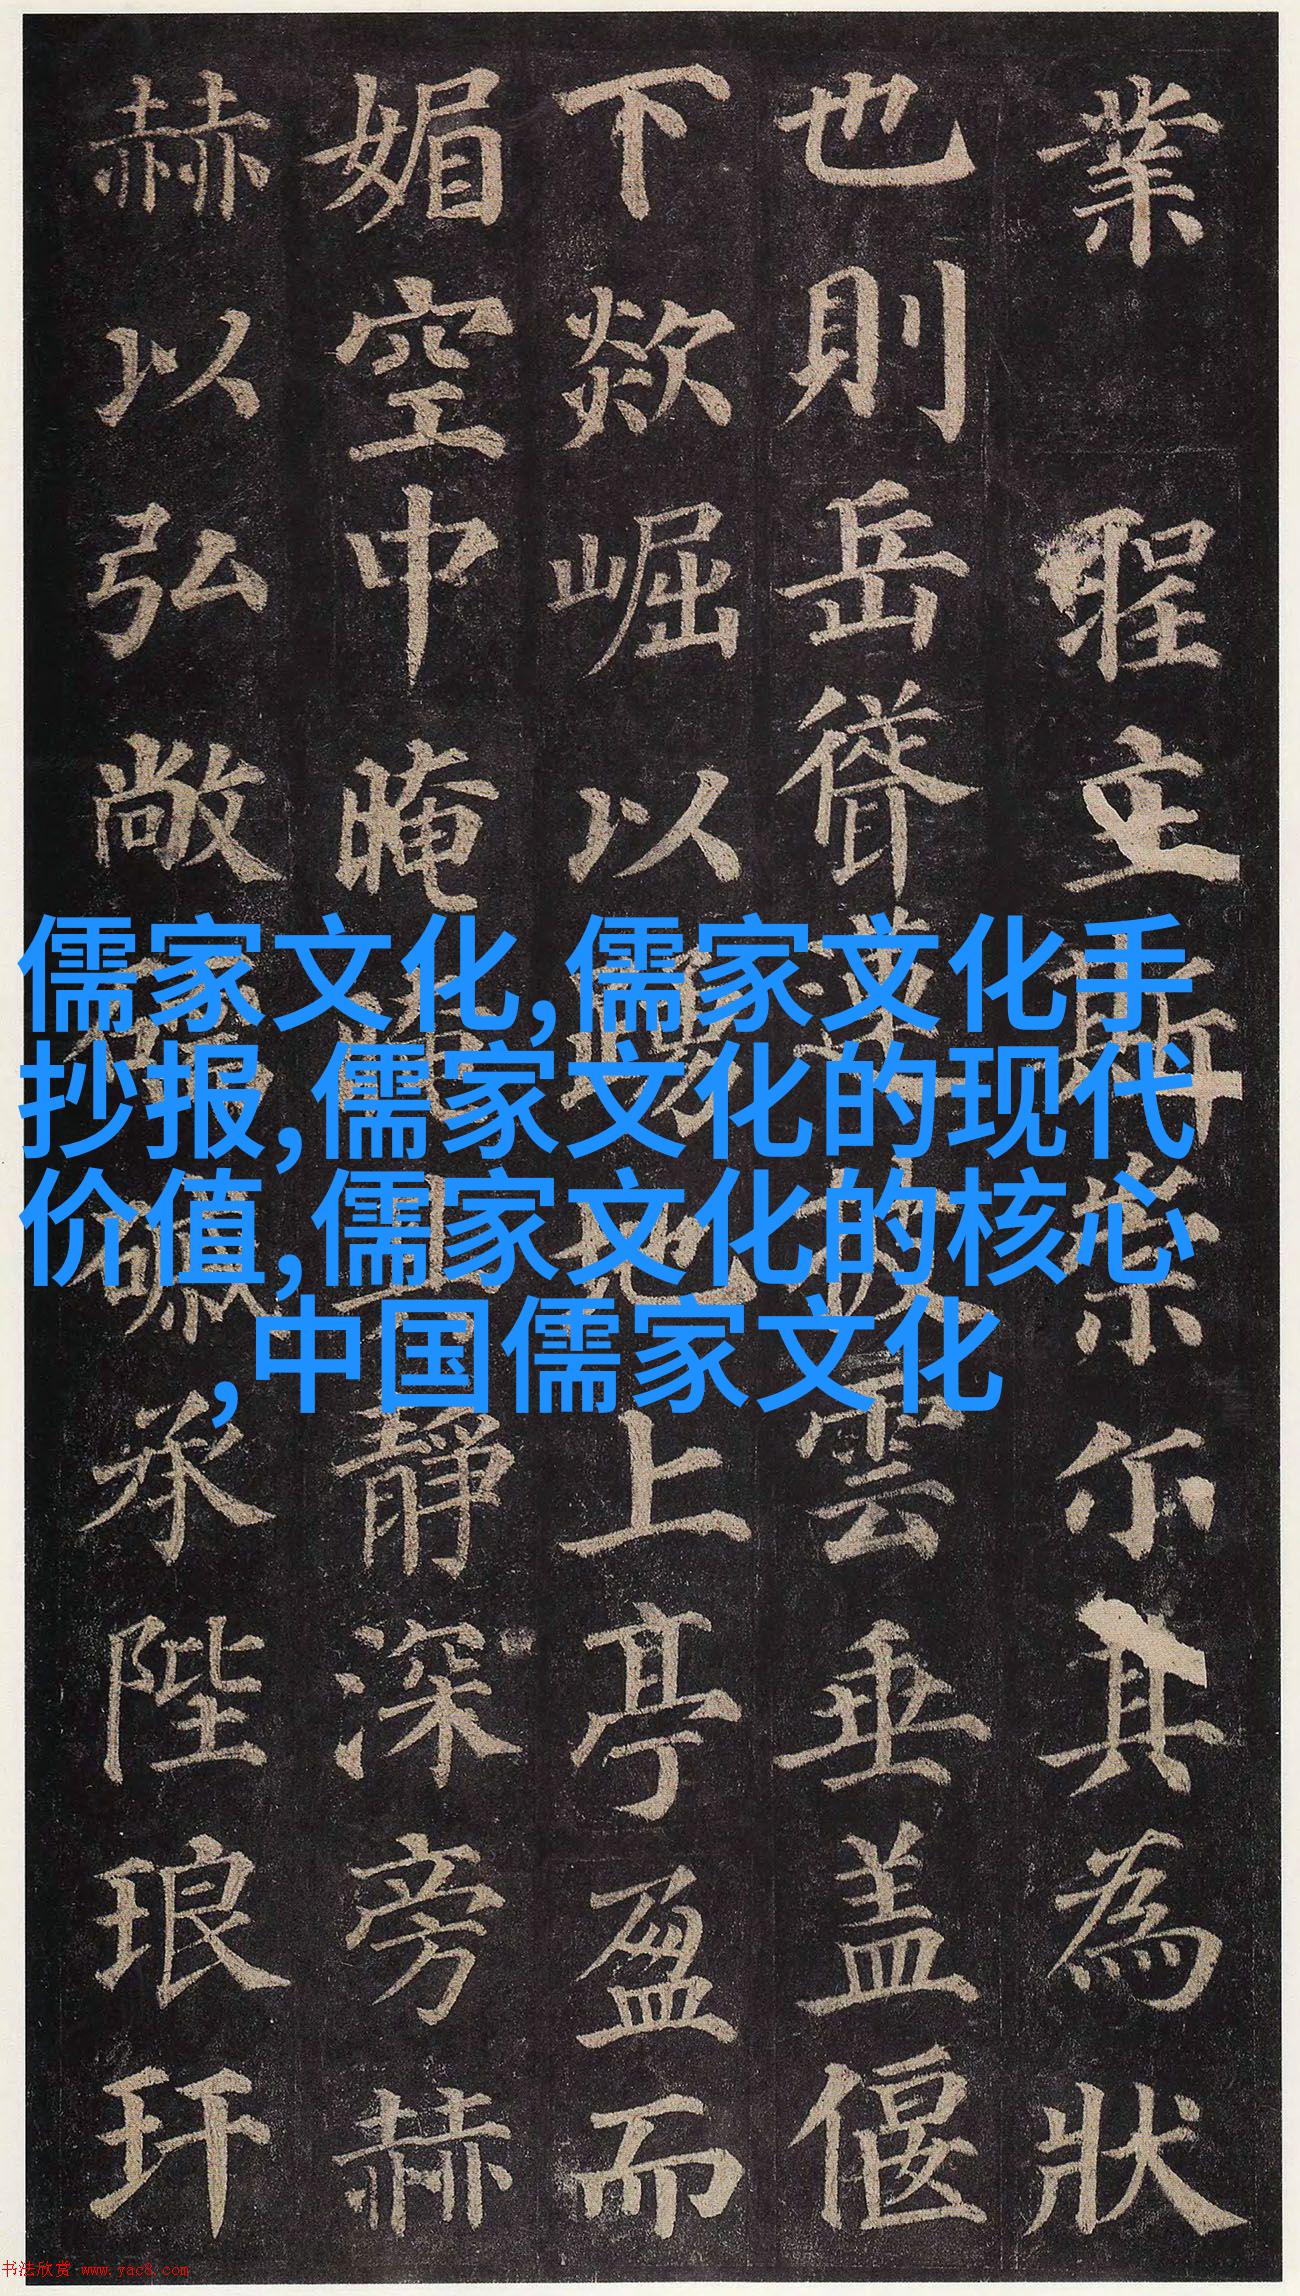 業 立斯尔其為狀
也則岳聳雲垂盖偃
下欻崛以地上亭盈而
媚空中晻靜深旁赫
赫以弘敞承陛琅玕
儒家文化,儒家文化手
抄报,儒家文化的现代
价值,儒家文化的核心
,中国儒家文化
书法欣赏 www.yac8.com